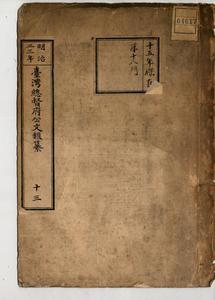 十五年保存
第十八門
明治
三三年
臺灣總督府公文類纂
十三